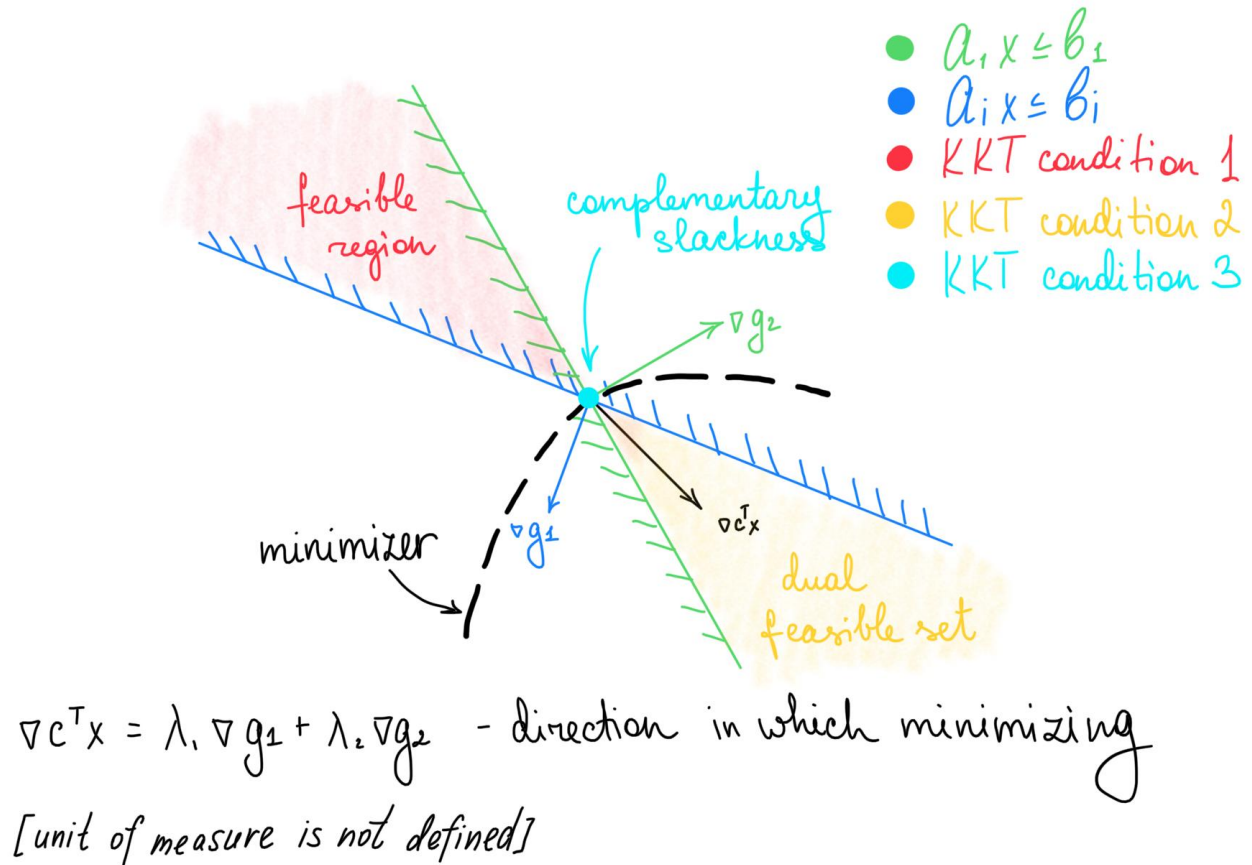 a₁ x ≤ b₁
aᵢ x ≤ bᵢ
KKT condition 1
KKT condition 2
KKT condition 3
feasible
region
complementary
slackness
∇g₂
∇g₁
∇cᵀx
minimizer
dual
feasible set
∇cᵀx = λ₁ ∇g₁ + λ₂ ∇g₂ - direction in which minimizing
[unit of measure is not defined]